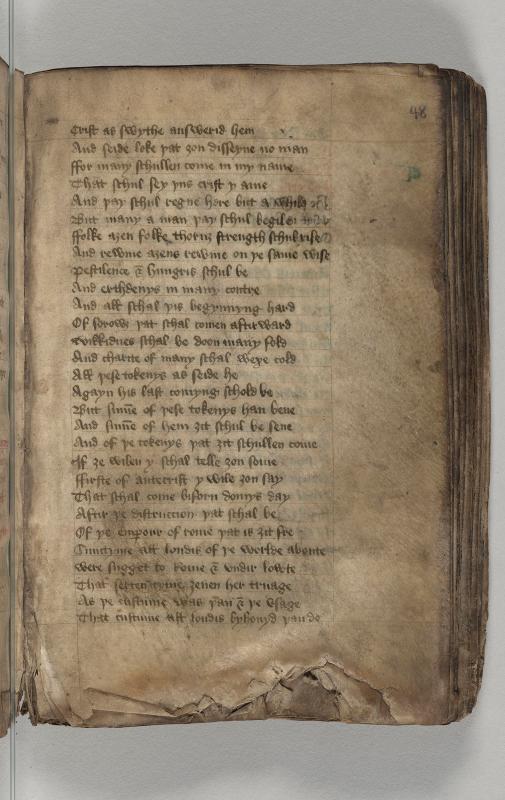 48
Crist as swythe answerid hem
And seide loke þat ȝou disseyue no man
ffor many schullen come in my name
That schul sey þus crist y ame
And þay schul regne here but a while
But many a man þay schul begile
ffolke aȝen folke thoruȝ strength schul rise
And rewme aȝens rewme on þe same wise
Pestilence & hungris schul be
And erthdenys in many contre
And all schal þis begynnyng hard
Of sorowȝ þat schal comen aftirward
Wikkidnes schal be doon many fold
And charite of many schal wexe cold
All þese tokenys as seide he
Agayn his last comyng schold be
But summe of þese tokenys han bene
And summe of hem ȝit schul be sene
And of þe tokenys þat ȝit schullen come
If ȝe wilen y schal telle ȝou some
ffirste of antecrist y wile ȝou say
That schal come biforn domys day
Aftir þe distruccion þat schal be
Of þe empour of rome þat is ȝit fre
Sumtyme all londis of þe worlde aboute
were suget to Rome & vndir lowte
That certen tyme ȝeuen her truage
As þe custume was þan & þe vsage
That custume all londis byhouyd